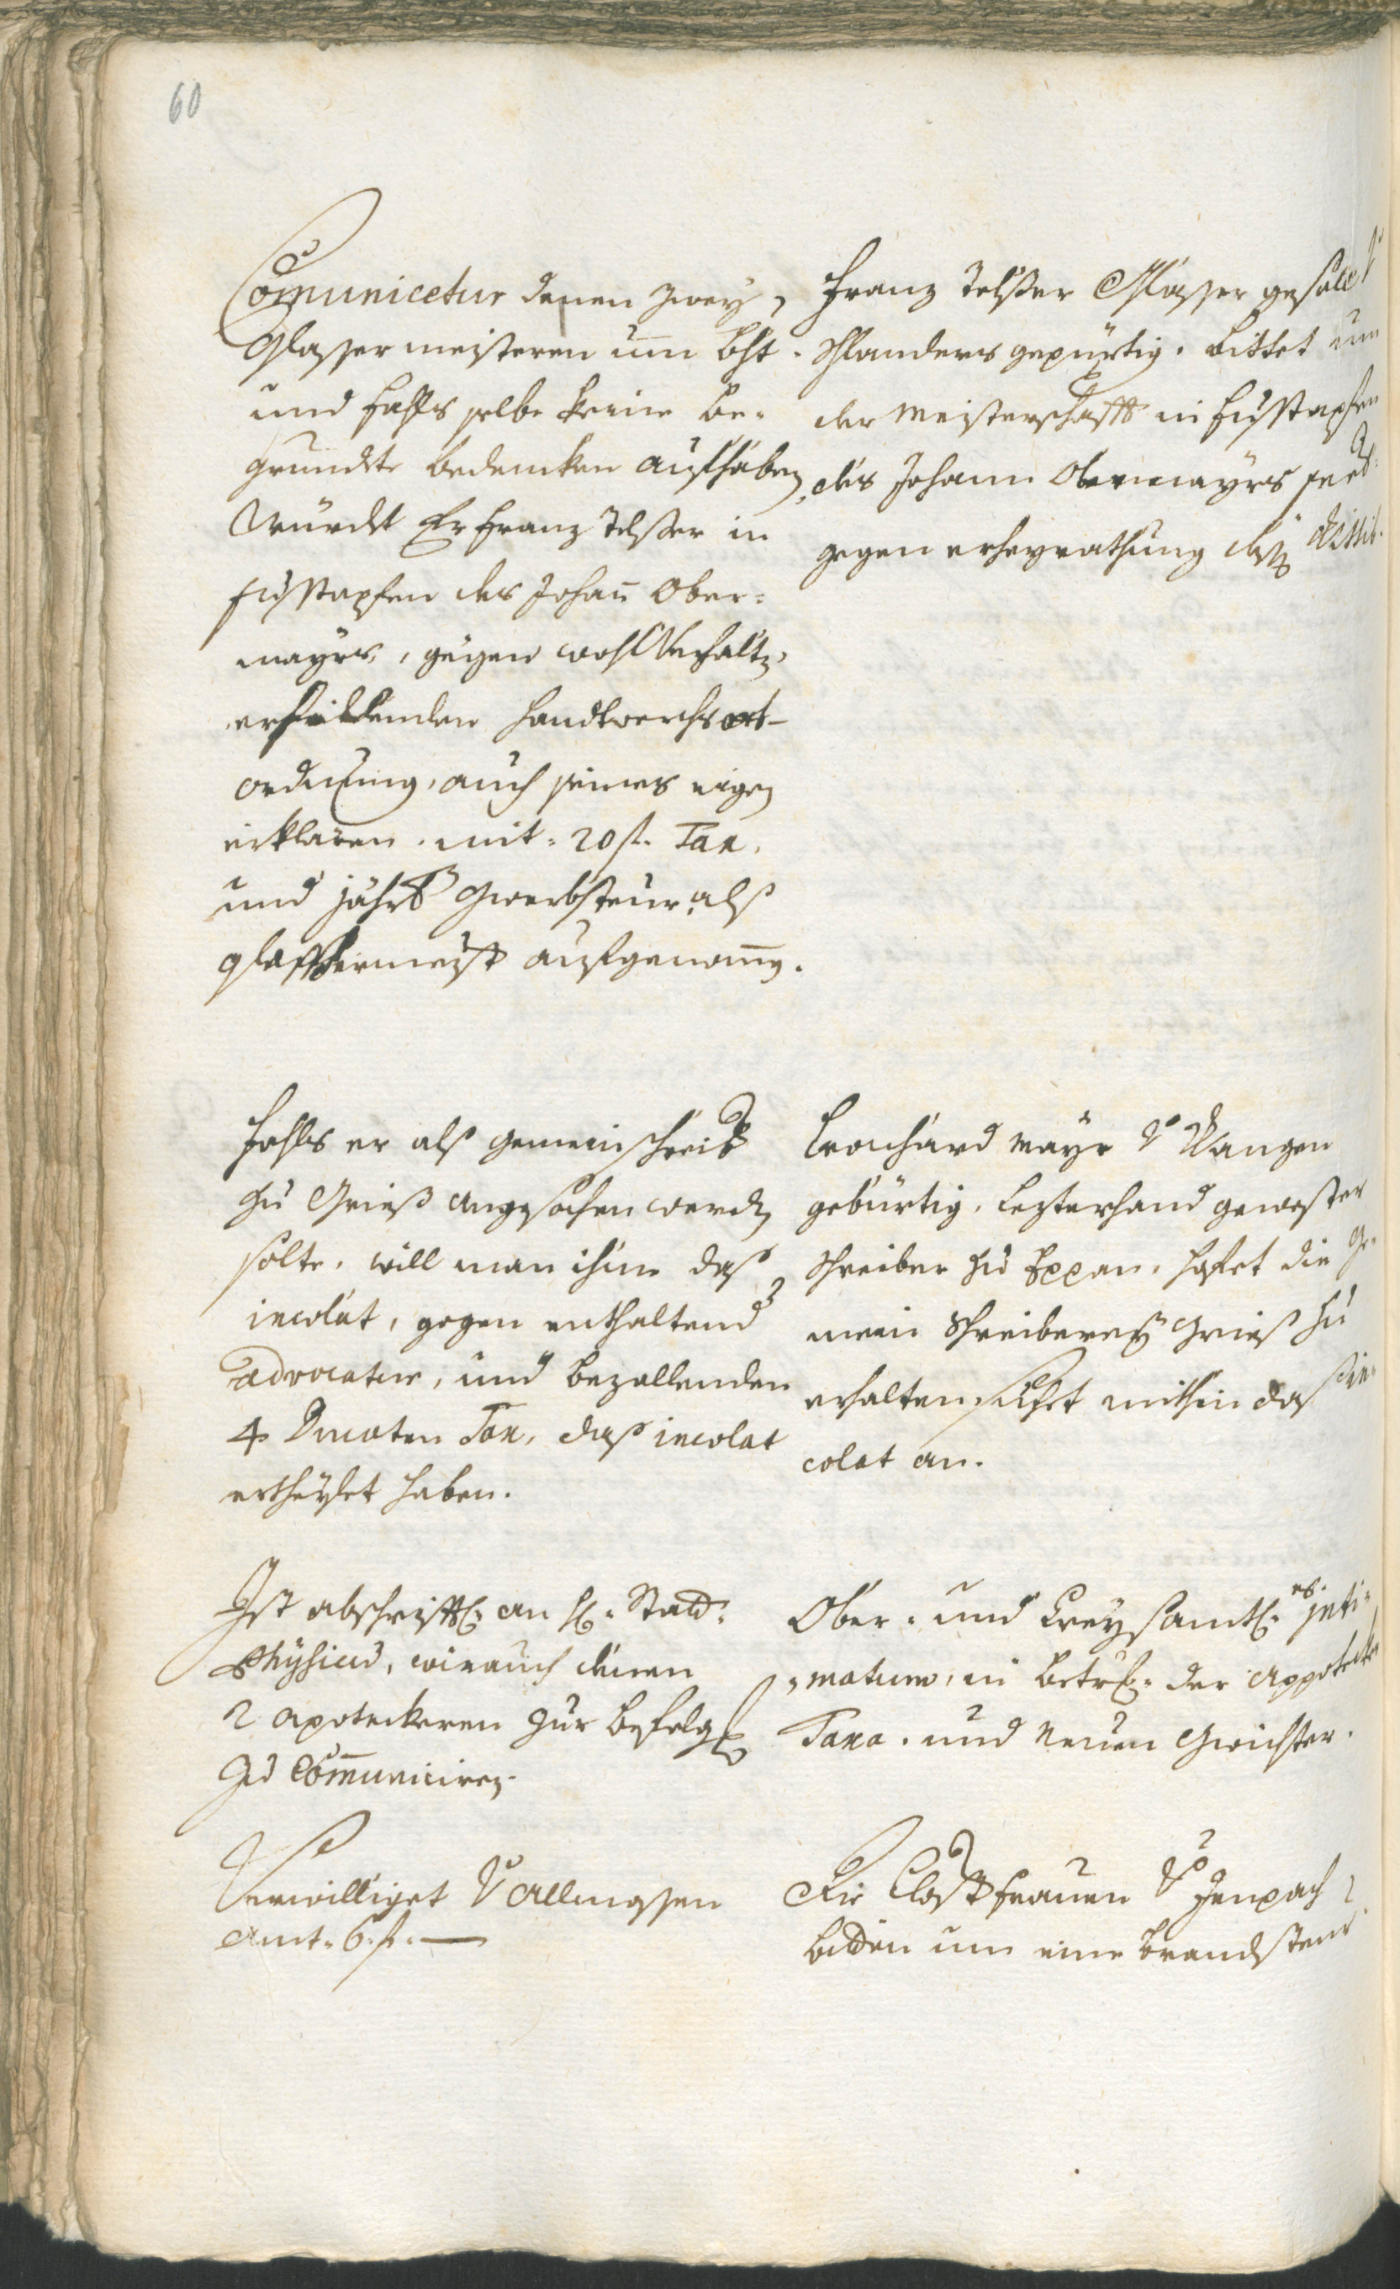 60
Comunicetur denen zwey
Glassermeisteren um bht.
und fahls selbe keine be=
grundte bedencken aufhaben,
Würdt Er Franz Telsser in
fuesstapfen des Johann Ober=
mayrs, gegen wohl Verhaltn,
erfüllenden handtwerchs
ordnung, auch seines aigen
erklären. mit = 20 f. Tax,
und jährl. Gwerbsteur alß
glassermeister aufgenomen.
Franz Telsser Glasser gesöll v
Schlanders gepürtig. bittet um
der Meisterschafft in fuesstapfen
des Johann Obermayrs seel.
gegen erheyrathung dessen Wittib.
fahls er alß gemeinschreiber
zu Grieß angesechen werden
solte, will man ihme daß
incolat, gegen enthaltend
advocatur, und bezallenden
4 Ducaten Tax, daß incolat
ertheyllet haben.
Leonhard Mayr v Wangen
gebürtig. lezterhand gewester
Schreiber zu Eppan, hoffet die Ge=
mein Schreiberey Grieß zu
erhalten, suecht mithin daß in=
colat an.
Ist abschrifftl. an H. Statt=
Physicus, wie auch denen
2 apoteckeren zur befolgung
zu Communiciren.
Ober= und Creysamtl. es. inti=
=matum, in betref. der Appotecker
Taxa. und Neuen Gwichter.
Verwilliget v Allmossen
Amt. 6. f. —
Die Closterfrauen v
bitten um eine brandsteur